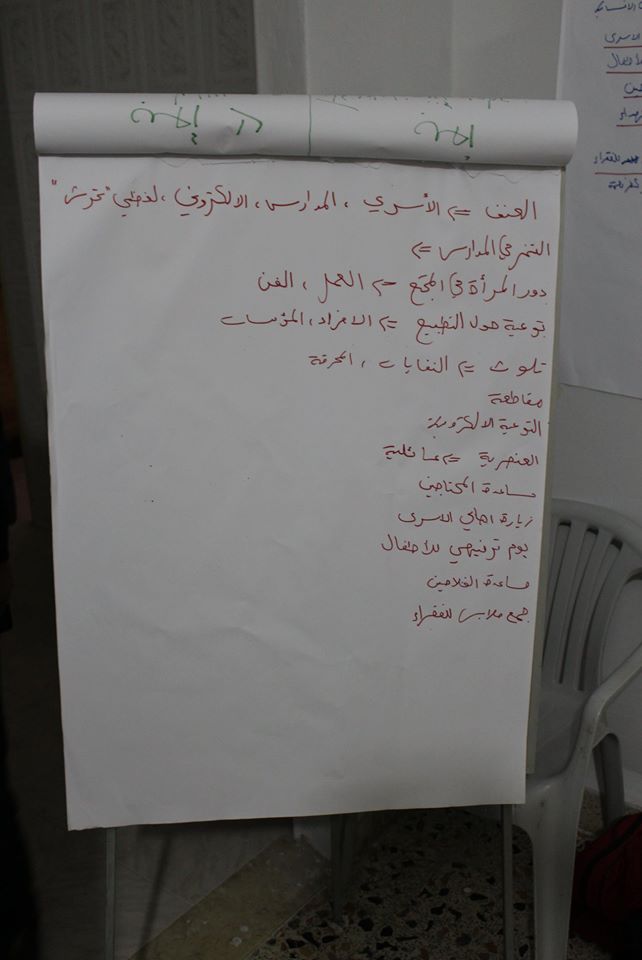 العنف => الأسري ، المدارس ، الالكتروني ، لفظي "تحرش"
التنمر في المدارس =>
دور المرأة في المجتمع => العمل ، الفن
توعية حول التطبيع => الافراد ، المؤسسات
تلوث => النفايات ، المحرقة
مقاطعة
التوعية الالكترونية
العنصرية => عائلية
مساعدة المحتاجين
زيارة اهالي الاسرى
يوم ترفيهي للأطفال
مساعدة الفلاحين
جمع ملابس للفقراء
الاسرى